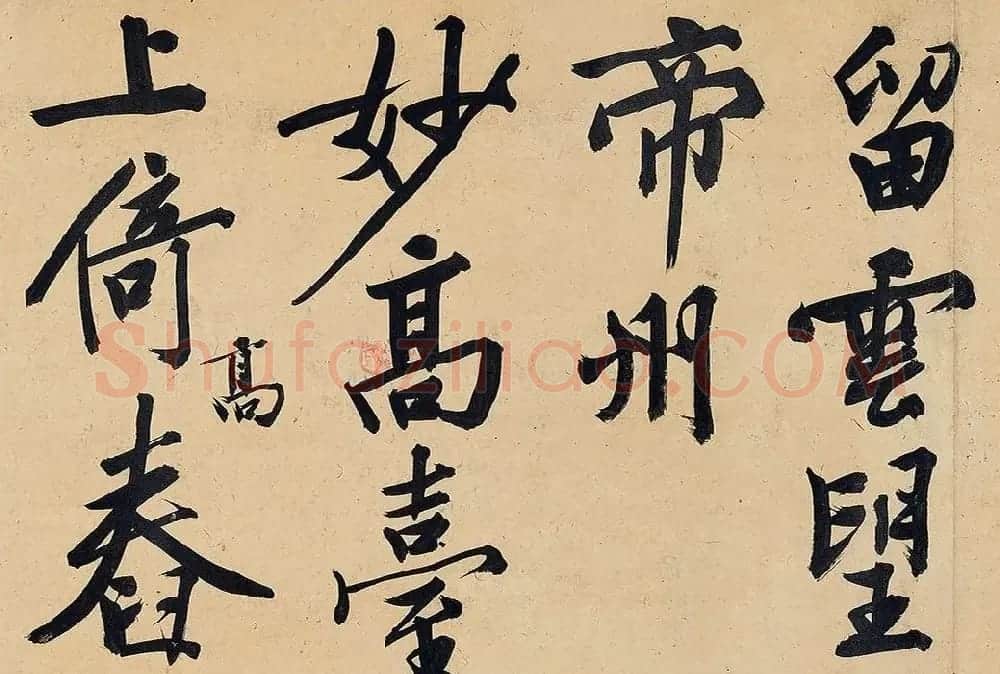 留雲望
帝州
妙高臺
上倚高舂
Shufaziliao.COM